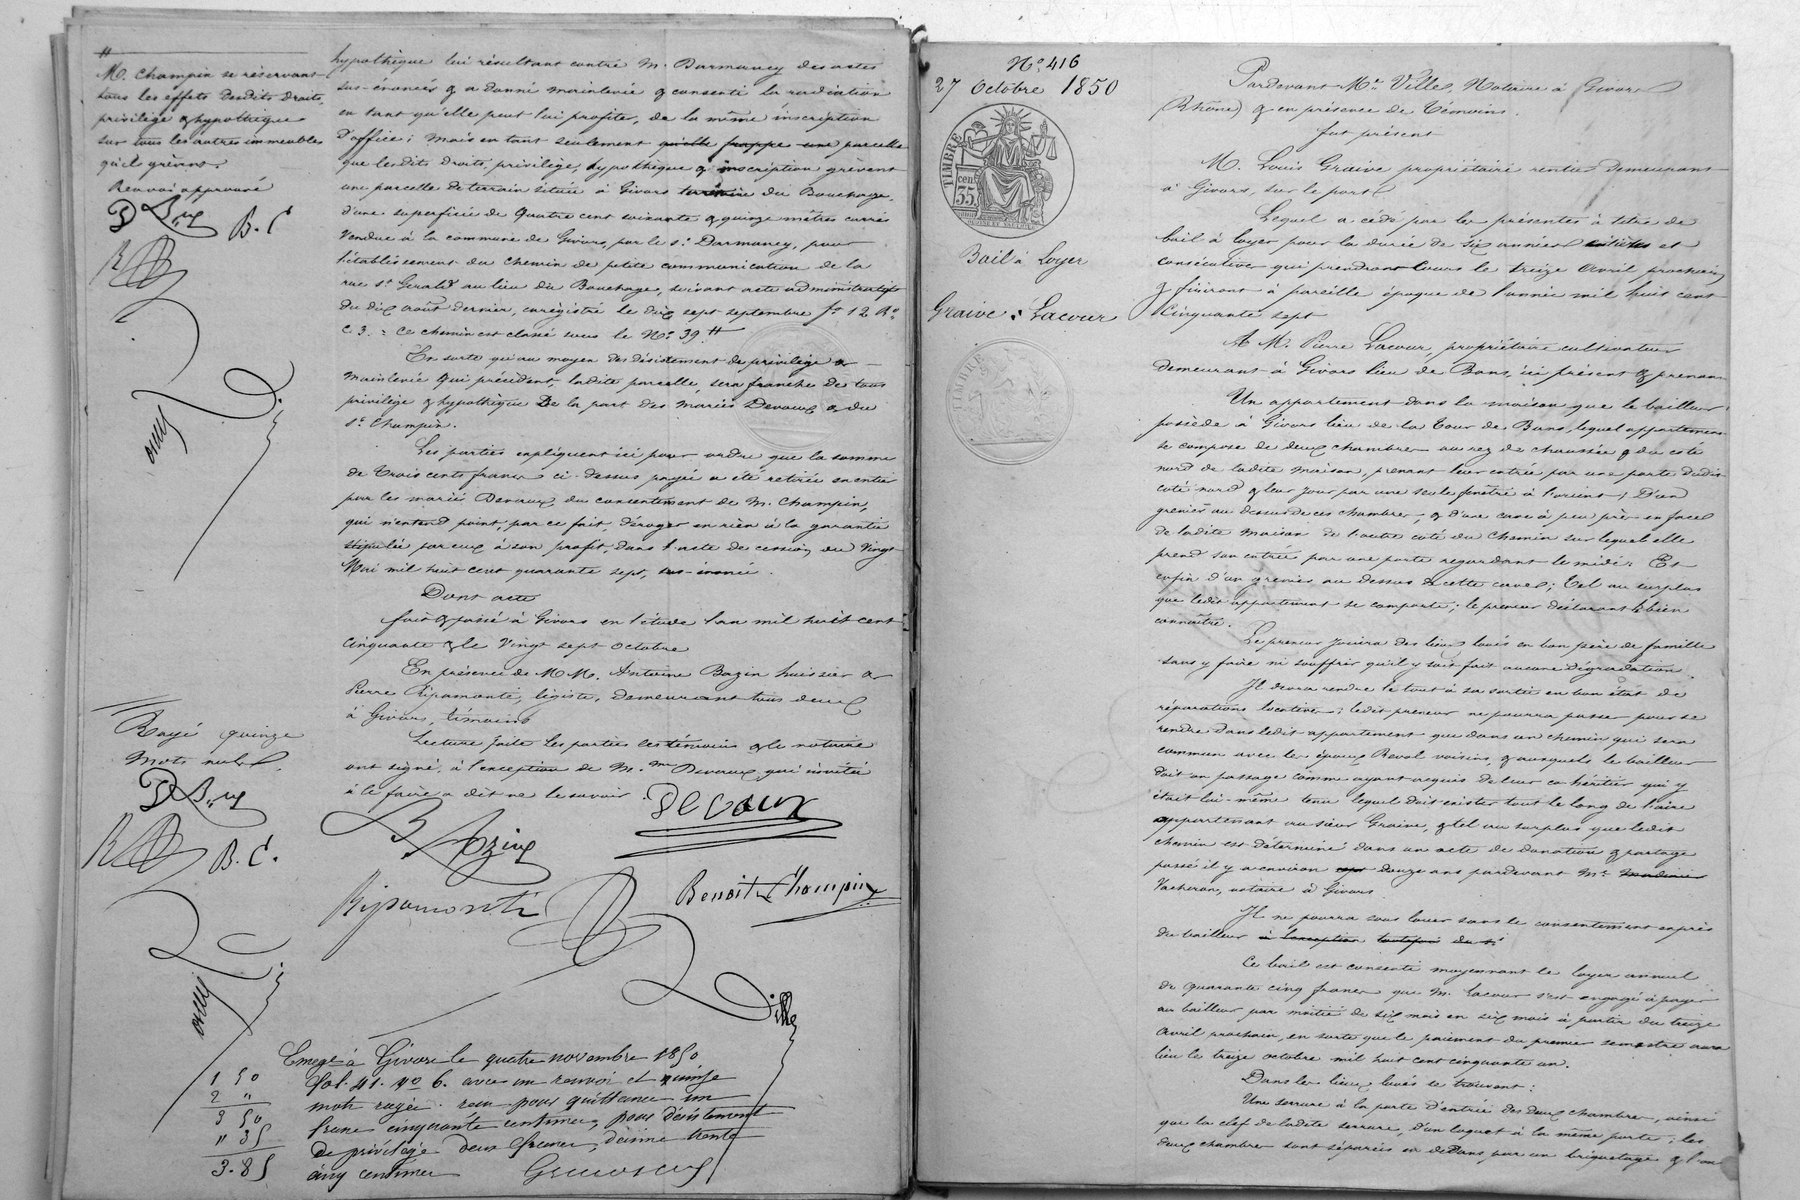 M. Champin se réservant
tous les effets desdits droits,
privilège & hypothèque
sur tous les autres immeubles
qu'il grèvent.
Renvoi approuvé
B. C
hypothèque lui résultant contre M. Darmancy des actes
sus-énoncés & a donné mainlevée & consenti la radiation
en tant qu'elle peut lui profiter, de la même inscription
D'office; mais en tant seulement qu'elle frappe une parcelle
que lesdits droits, privilège, hypothèque & inscription grèvent
une parcelle de terrain située à Givors du Bouchage,
d'une superficie de quatre cent soixante & quinze mètres carrés
Vendue à la commune de Givors, par le s.r Darmancy, pour
l'établissement du chemin de petite communication de la
rue St Gerald au lieu du Bouchage, suivant acte administratif
du dix août dernier, enregistré le dix sept septembre fo 12 Ro
C. 3. = Ce chemin est classé sous le No 39 #
En sorte qu'au moyen des désistement de privilège &
mainlevée qui précèdent, ladite parcelle, sera franche de tous
privilège & hypothèque De la part des mariés Devaux & du
s.r Champin.
Les parties expliquent ici pour ordre que la somme
de trois cents francs ci-dessus payée a été retirée en entier
par les mariés Devaux du consentement de M. Champin,
qui n'entend point, par ce fait, déroger en rien à la garantie
stipulée par eux à son profit, dans l'acte de cession du Vingt
Mai mil huit cent quarante sept, sus-énoncé.
Dont acte
fait & passé à Givors en l'étude l'an mil huit cent
cinquante & le Vingt sept octobre
En présence de MM. Antoine Bazin huissier &
Pierre Ripamonti, légiste, demeurant tous deux
à Givors, témoins
Lecture faite les parties les témoins & le notaire
ont signé, à l'exception de M.me Devaux qui invitée
à le faire a dit ne le savoir.
Rayé quinze
mots nuls.
B. C.
Devaux
BAzin
Ripamonti
Benoit Champin
Ville
Enregé à Givors le quatre novembre 1850
fol. 41. Vo 6. avec un renvoi et quinze
mots rayés. reçu pour quittance un
franc cinquante centimes, pour désistement
de privilège deux francs, décime trente
cinq centimes
1 50
2 "
3 50
" 35
3.85
No 416
27 Octobre 1850
TIMBRE
35 cent
Bail à Loyer
Graive : Lacour
TIMBRE
Pardevant Me Ville, Notaire à Givors
(Rhône) & en présence de Témoins.
fut présent
M. Louis Graive propriétaire rentier demeurant
à Givors, sur le port
Lequel a cédé par les présentes à titre de
bail à loyer pour la durée de six années entières et
consécutives qui prendront cours le treize Avril prochain
& finiront à pareille époque de l'année mil huit cent
Cinquante sept
A M. Pierre Lacour, propriétaire cultivateur
demeurant à Givors lieu de Bans, ici présent & prenant
Un appartement dans la maison que le bailleur
possède à Givors lieu de la Tour de Bans, lequel appartement
se compose de deux chambres au rez de chaussée & du côté
nord de ladite maison, prenant leur entrée par une porte dudit
côté nord & leur jour par une seule fenêtre à l'orient; D'un
grenier au dessus de ces chambres, & d'une cave à peu près en face
de ladite maison de l'autre côté du chemin sur lequel elle
prend son entrée par une porte regardant le midi; Et
enfin d'un grenier au dessus de cette cave; Tel au surplus
que ledit appartement se comporte; le preneur déclarant le bien
connaître.
Le preneur jouira des lieux loués en bon père de famille
sans y faire ni souffrir qu'il y soit fait aucune dégradation.
Il devra rendre le tout à sa sortie en bon état de
réparations locatives; ledit preneur ne pourra passer pour se
rendre dans ledit appartement que dans un chemin qui sera
commun avec les époux Revol voisins, & auxquels le bailleur
doit un passage comme ayant acquis de leur co-héritier qui y
était lui-même tenu lequel doit exister tout le long de l'aire
appartenant au sieur Graive, & tel au surplus que ledit
chemin est déterminé dans un acte de donation & partage
passé il y a environ douze ans pardevant Me
Vacheron, notaire à Givors
Il ne pourra sous louer sans le consentement exprès
du bailleur à l'exception toutefois du s.r
Ce bail est consenti moyennant le loyer annuel
de quarante cinq francs que M. Lacour s'est engagé à payer
au bailleur par moitié de six mois en six mois à partir du treize
Avril prochain, en sorte que le paiement du premier semestre aura
lieu le treize octobre mil huit cent cinquante un.
Dans les lieux loués se trouvent:
Une serrure à la porte d'entrée des deux chambres, ainsi
que la clef de ladite serrure, d'un loquet à la même porte; les
deux chambres sont séparées en dedans par un briquetage & l'on